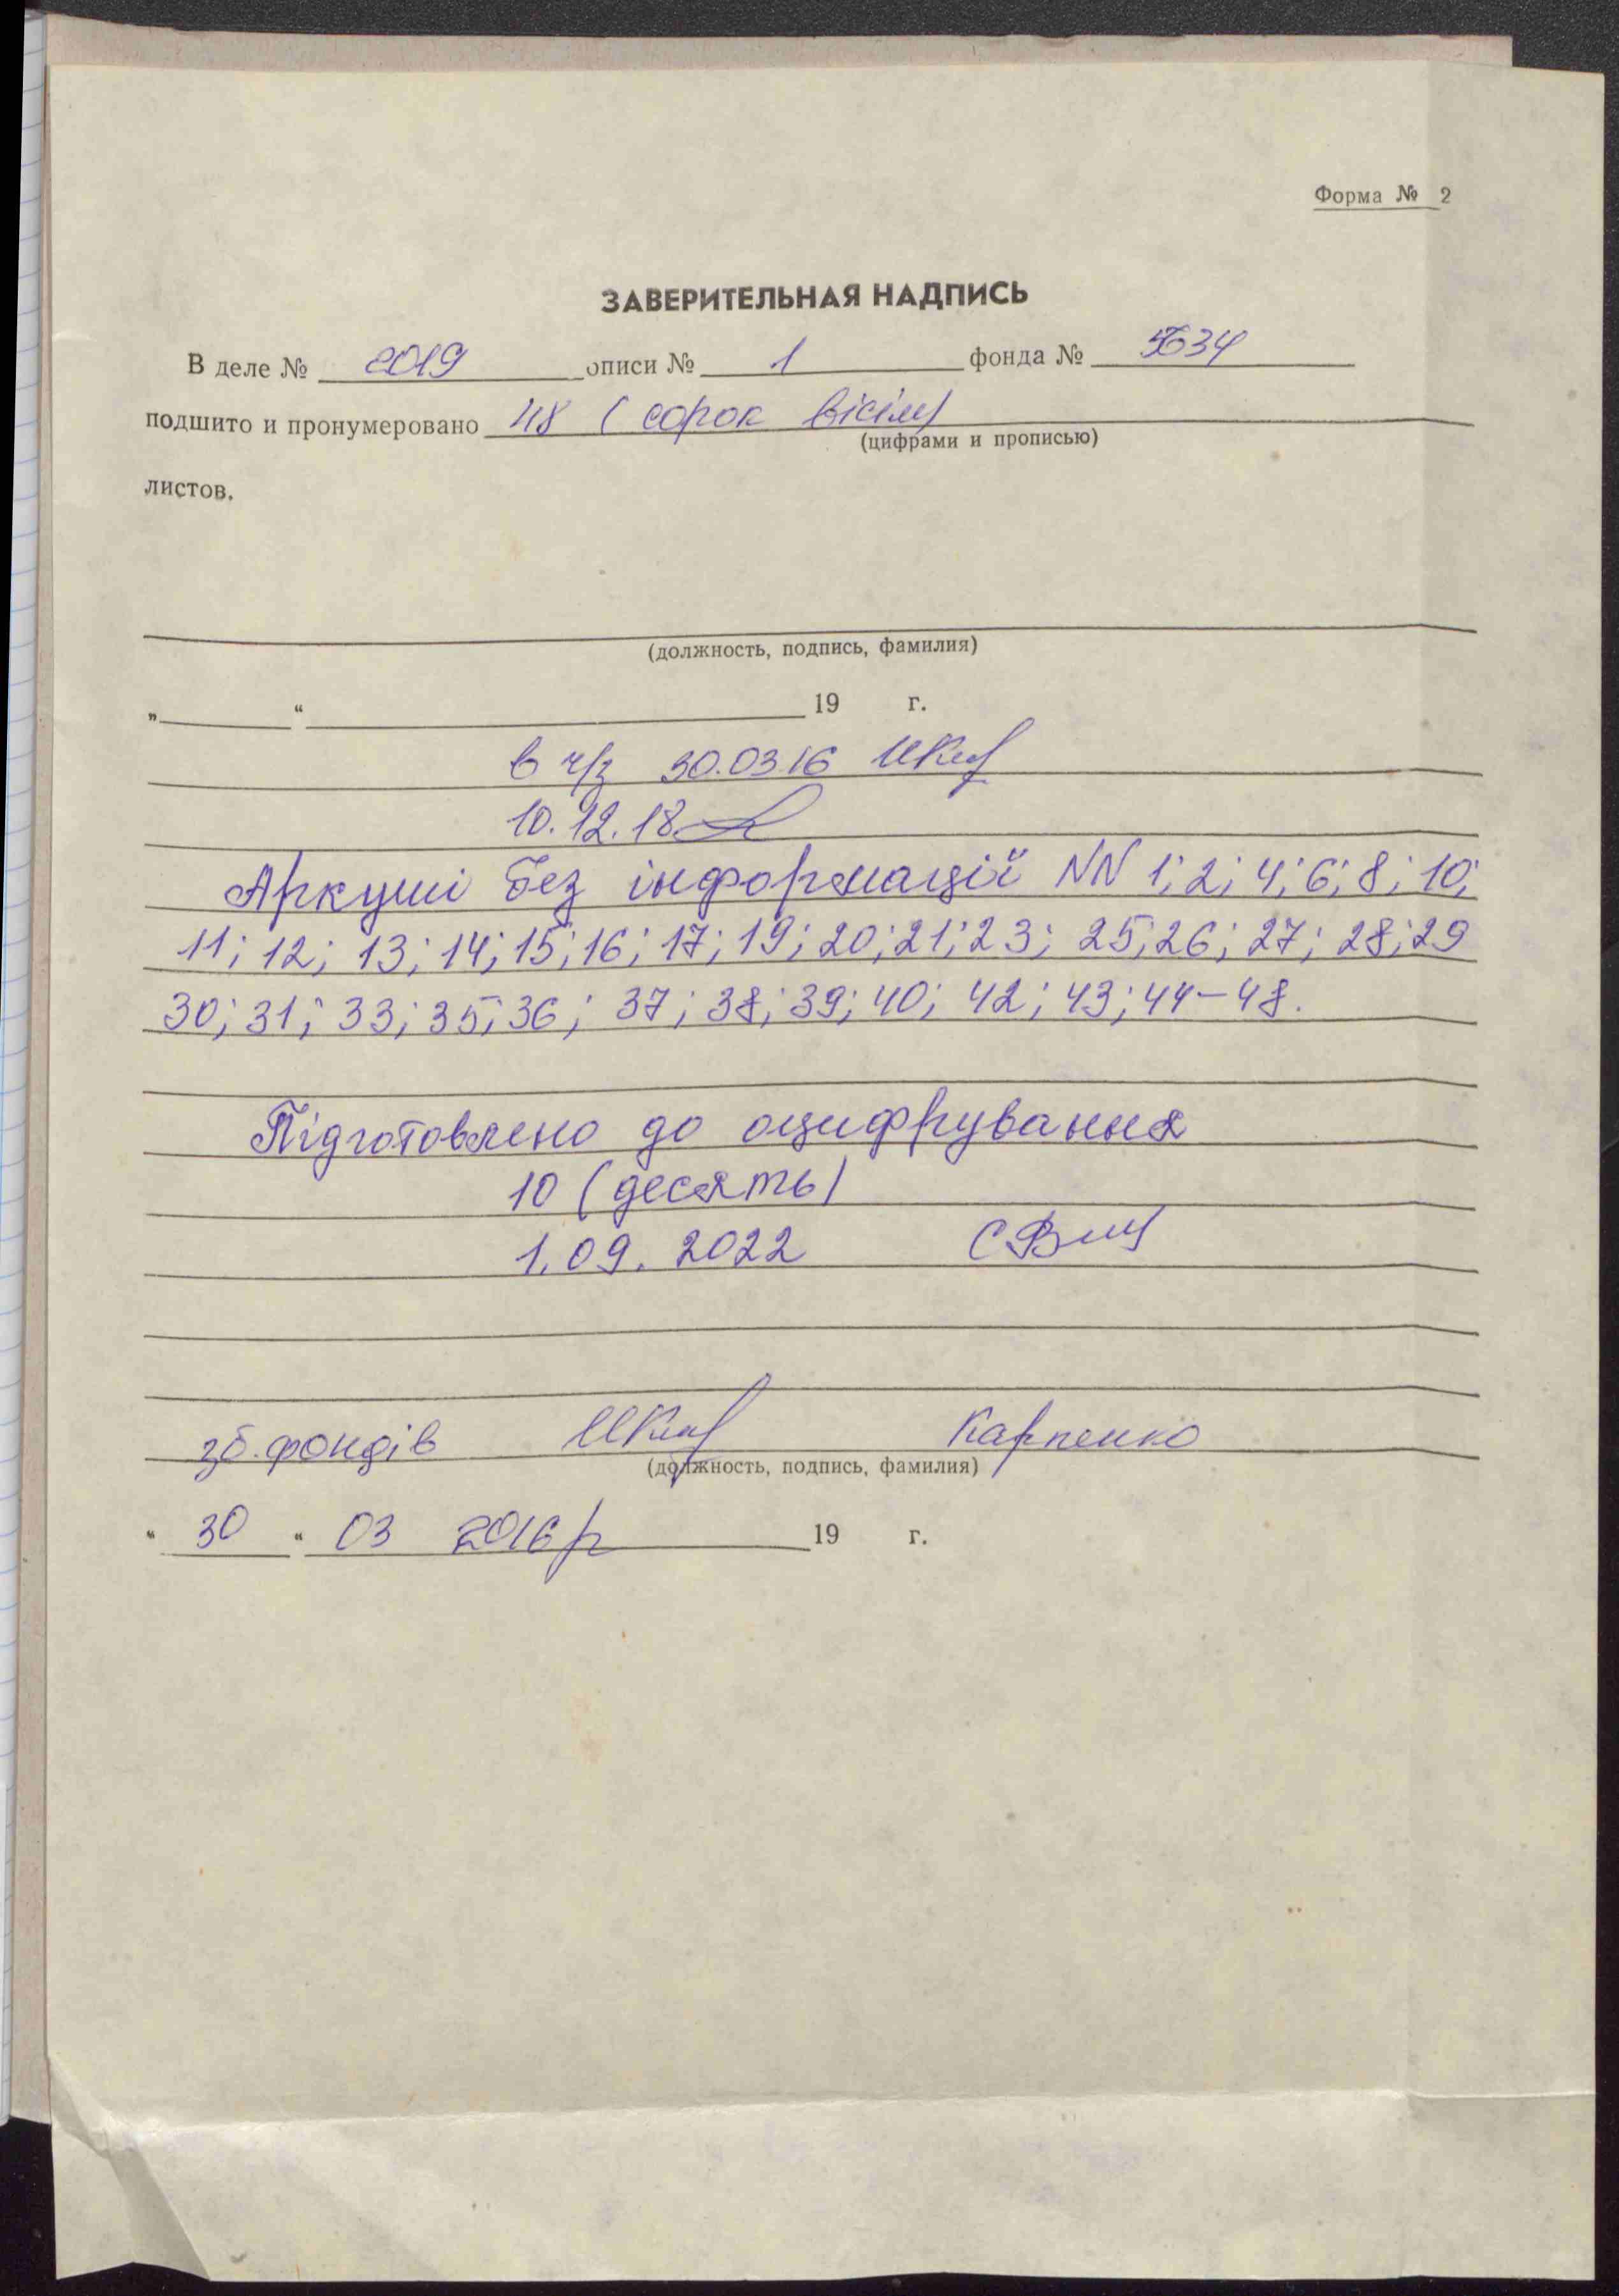 Форма № 2
ЗАВЕРИТЕЛЬНАЯ НАДПИСЬ
В деле № 2019 описи № 1 фонда № 5634
подшито и пронумеровано 48 (сорок вісім)
(цифрами и прописью)
листов.
(должность, подпись, фамилия)
„ “ 19 г.
в ч/з 30.03.16
10.12.18
Аркуші без інформацій NN 1; 2; 4; 6; 8; 10;
11; 12; 13; 14; 15; 16; 17; 19; 20; 21; 23; 25; 26; 27; 28; 29
30; 31; 33; 35; 36; 37; 38; 39; 40; 42; 43; 44-48.
Підготовлено до оцифрування
10 (десять)
1.09.2022
зб. фондів Карпенко
(должность, подпись, фамилия)
“ 30 “ 03 2016р 19 г.